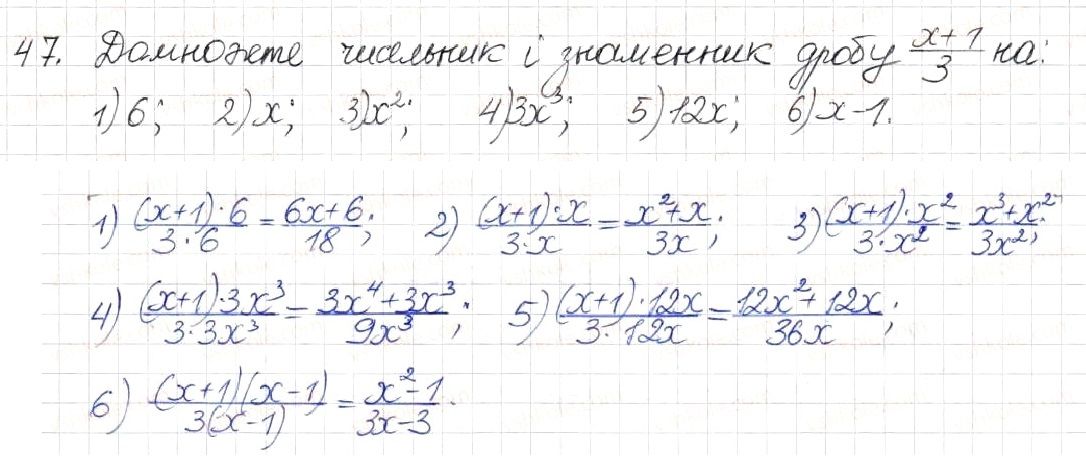 47. Домножте чисельник і знаменник дробу (x+1)/3 на:
1) 6; 2) x; 3) x²; 4) 3x³; 5) 12x; 6) x-1.
1) ((x+1)·6)/(3·6) = (6x+6)/18; 2) ((x+1)·x)/(3·x) = (x²+x)/(3x); 3) ((x+1)·x²)/(3·x²) = (x³+x²)/(3x²);
4) ((x+1)·3x³)/(3·3x³) = (3x⁴+3x³)/(9x³); 5) ((x+1)·12x)/(3·12x) = (12x²+12x)/(36x);
6) ((x+1)(x-1))/(3(x-1)) = (x²-1)/(3x-3).